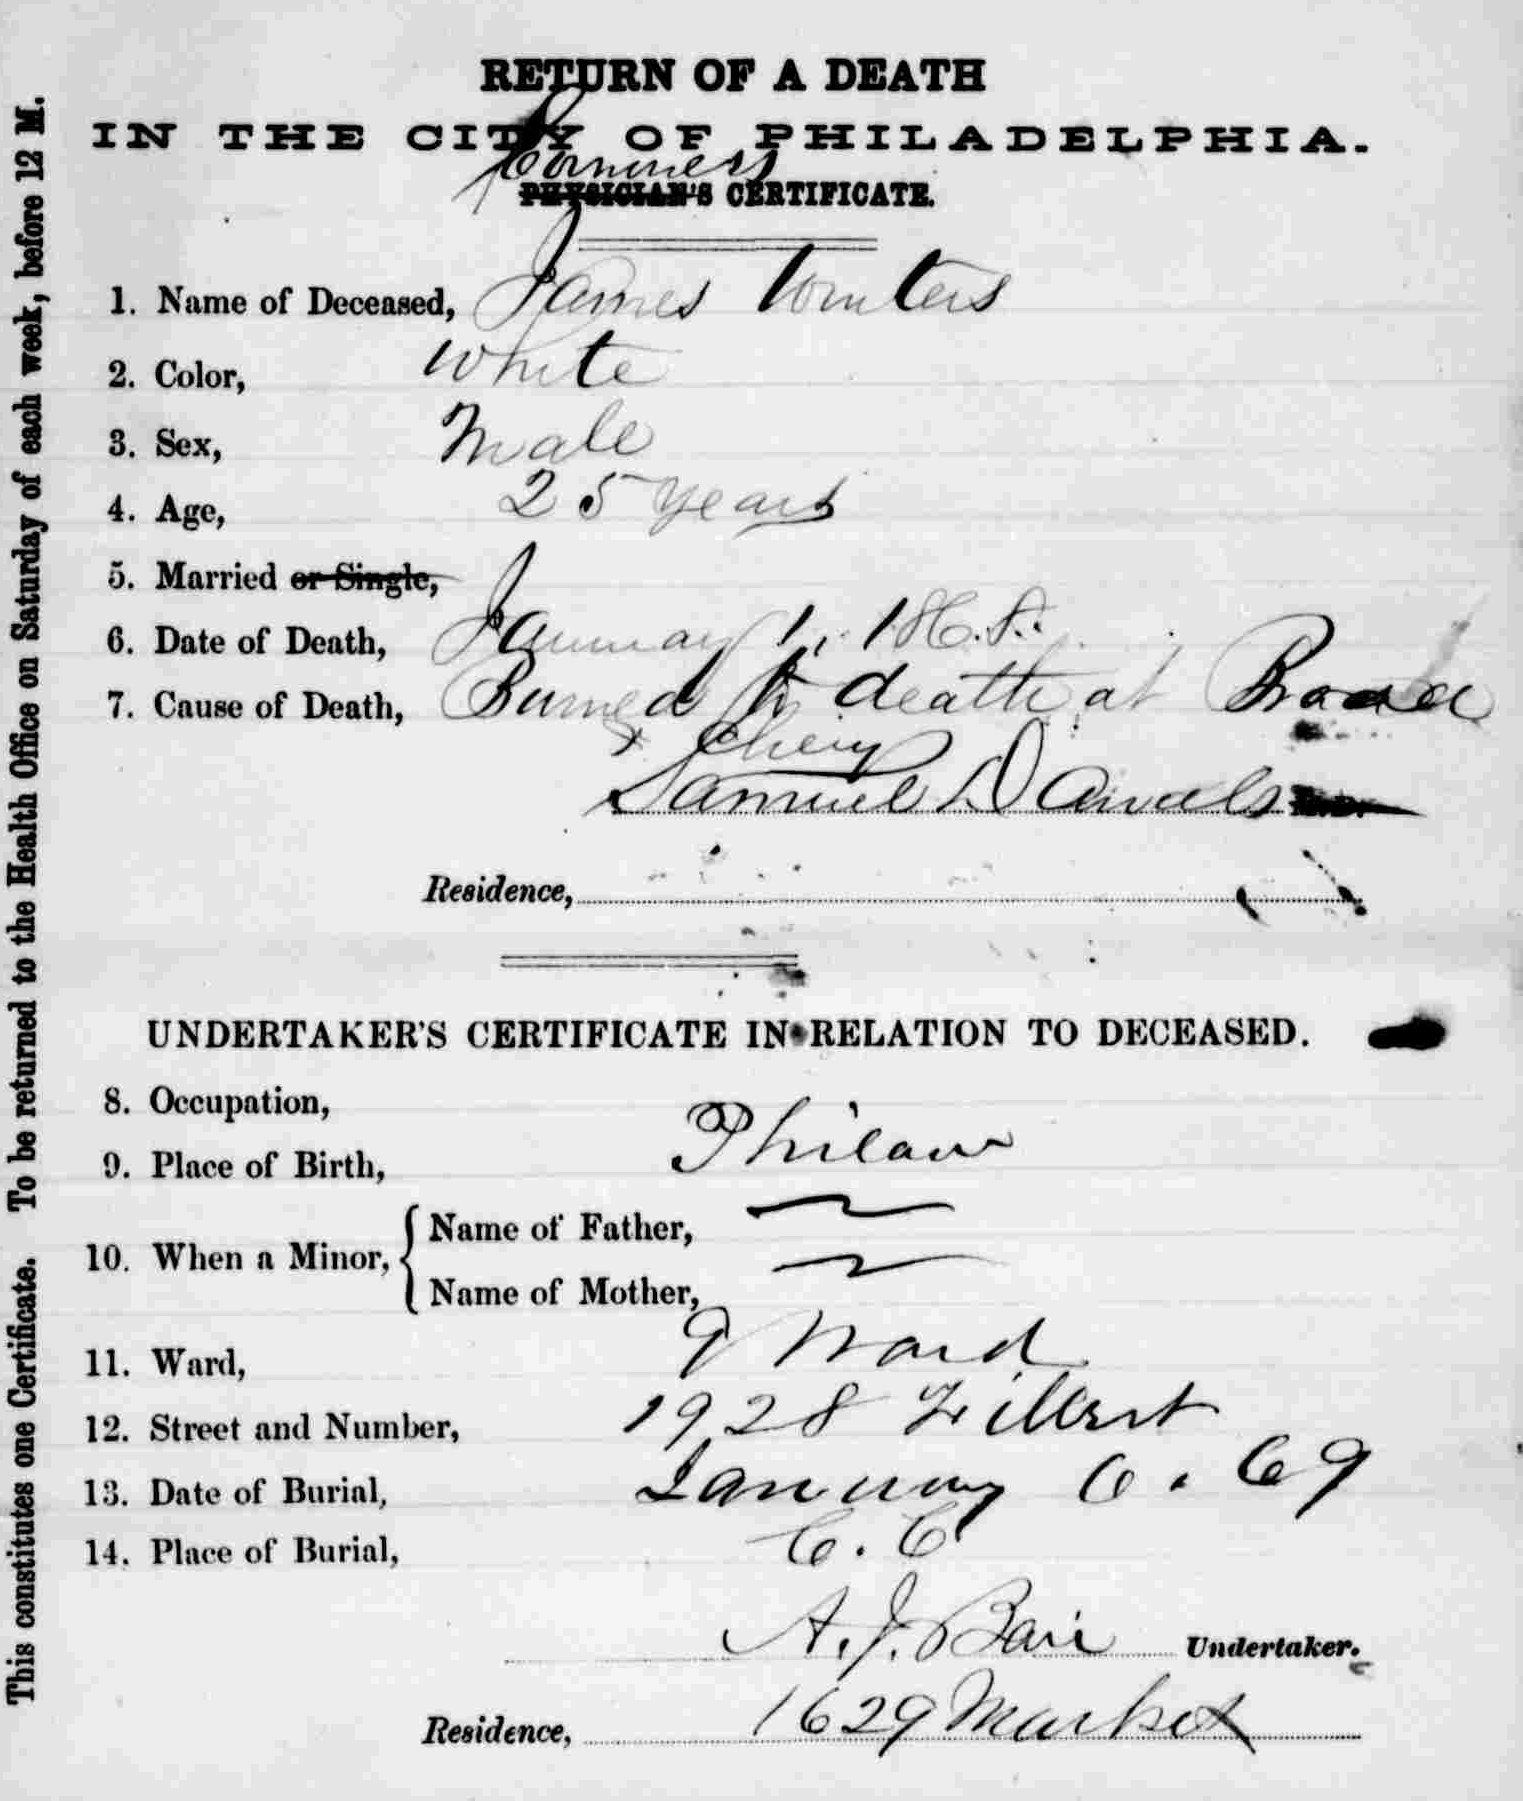 RETURN OF A DEATH
IN THE CITY OF PHILADELPHIA.
Coroners
PHYSICIAN'S CERTIFICATE.
1. Name of Deceased, James Winters
2. Color, White
3. Sex, Male
4. Age, 25 years
5. Married or Single,
6. Date of Death, January 1,
7. Cause of Death, Burned to death at Broad
& Chery
Samuel Daniels M.D.
Residence,
UNDERTAKER'S CERTIFICATE IN RELATION TO DECEASED.
8. Occupation,
9. Place of Birth, Philada
10. When a Minor, { Name of Father,
Name of Mother,
11. Ward, 9 Ward
12. Street and Number, 1928 Filbert
13. Date of Burial, January 6. 69
14. Place of Burial, C. C.
A. J. Bair Undertaker.
Residence, 1629 Market
This constitutes one Certificate. To be returned to the Health Office on Saturday of each week, before 12 M.